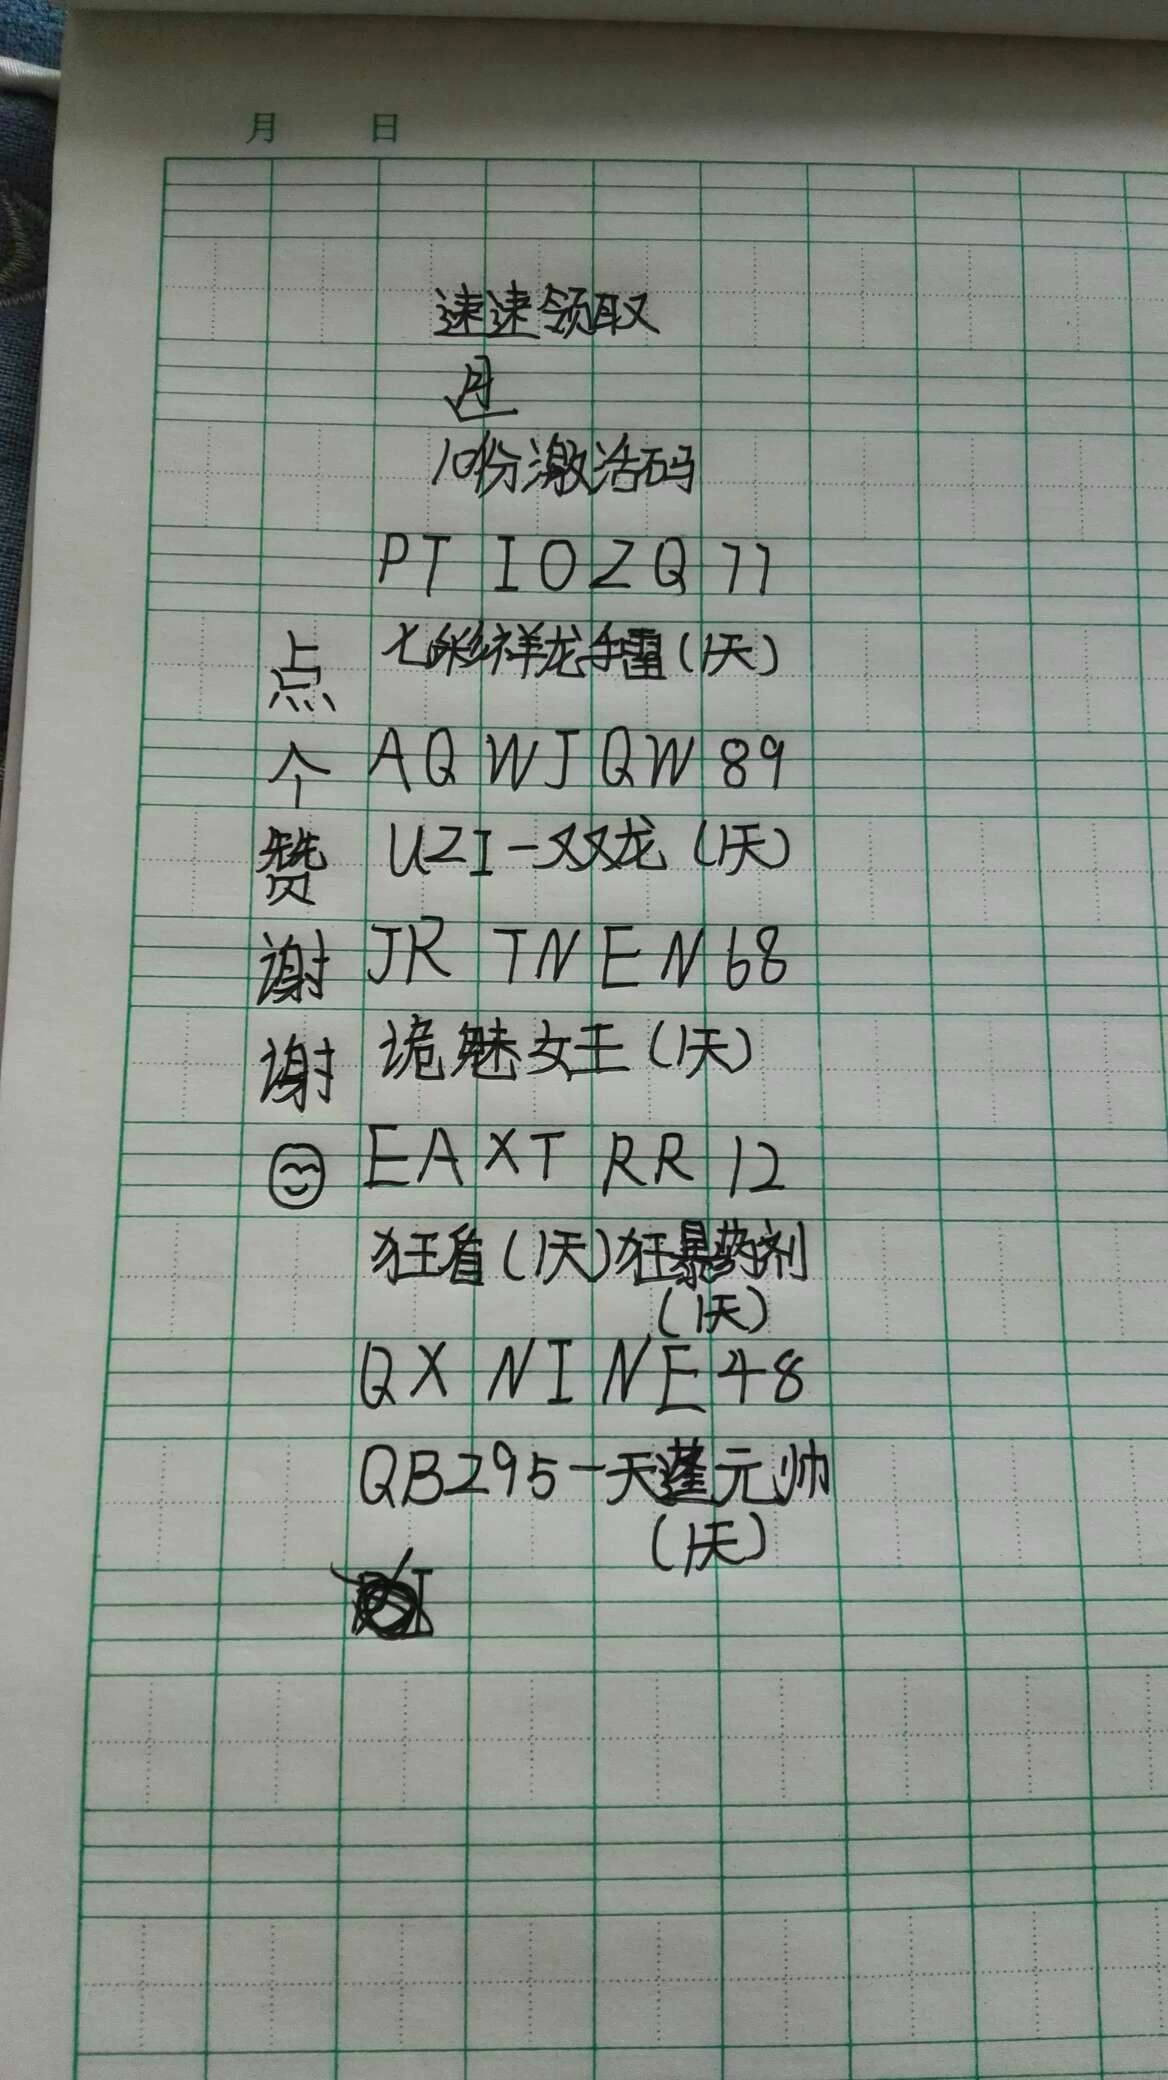 月 日
速速领取
10份激活码
PT IOZQ 77
七彩祥龙手雷(1天)
AQ WJ QW 89
UZI-双龙(1天)
JR TNEN68
诡魅女王(1天)
EAXT RR 12
狂盾(1天)狂暴药剂
(1天)
QX NINE48
QBZ95-天蓬元帅
(1天)
点
个
赞
谢
谢